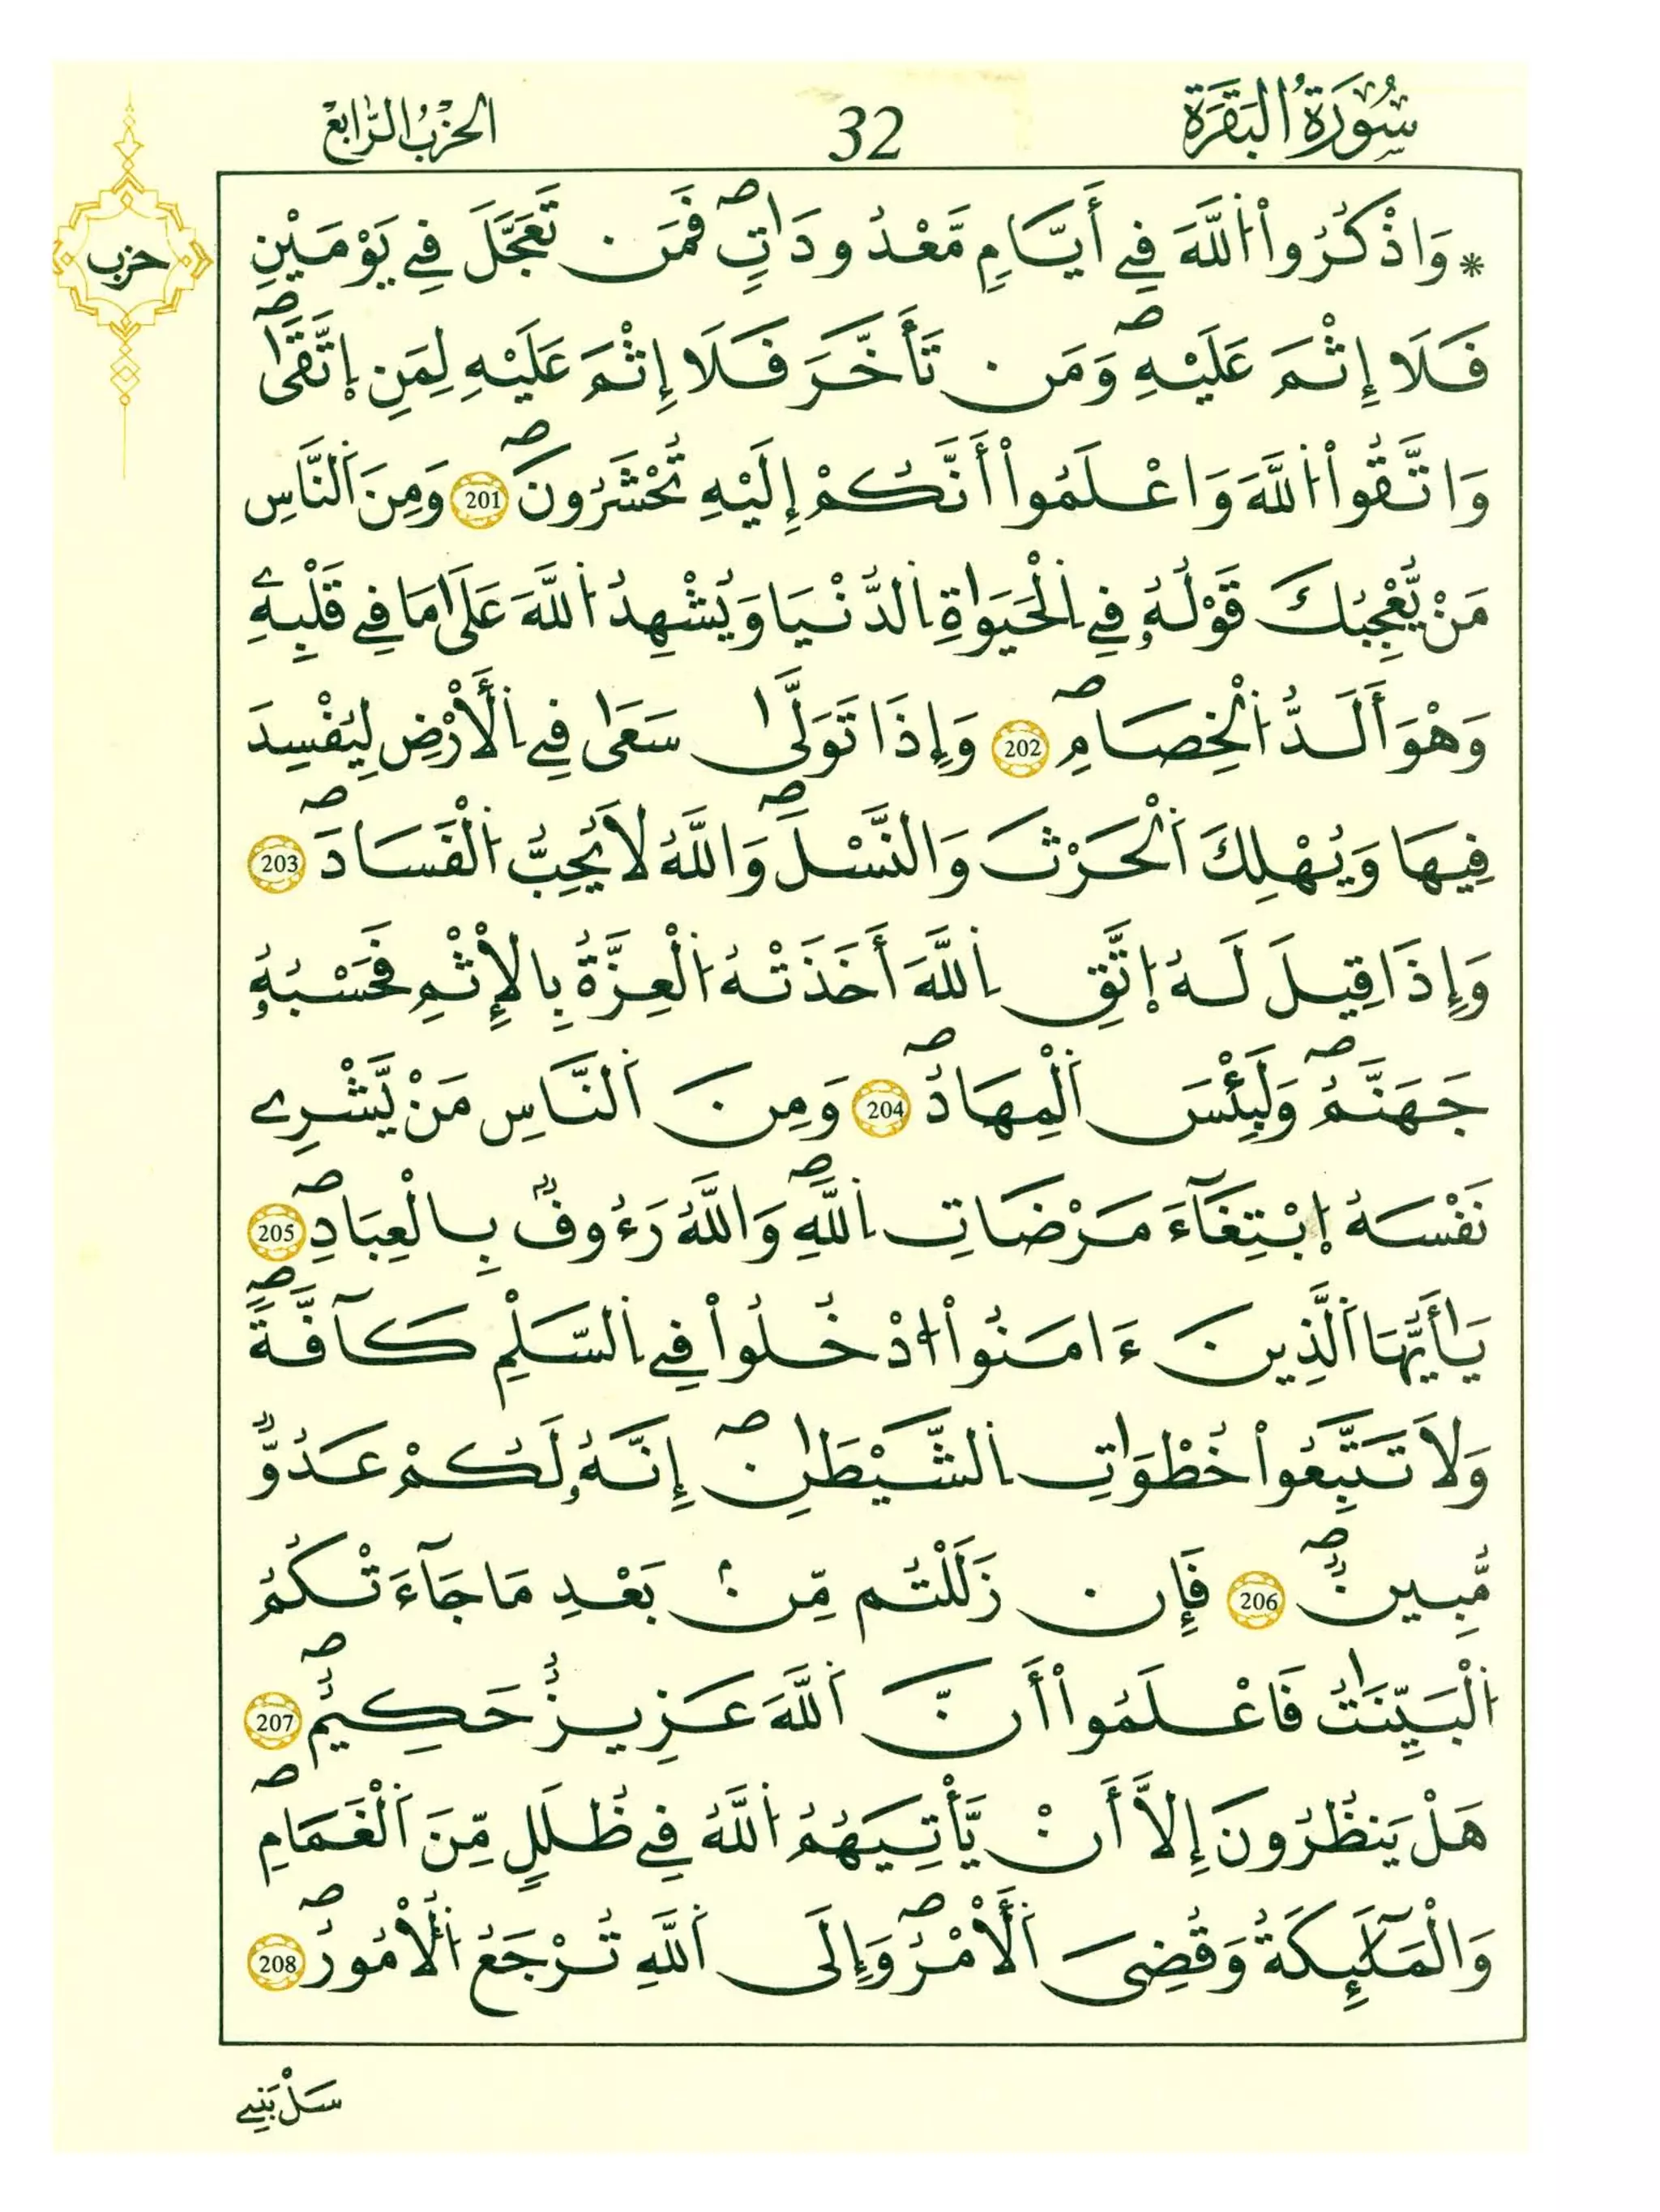 سُورَةُ الْبَقَرَةِ 32 الحِزْبُ الرَّابِعُ
حزب
* وَاذْكُرُواْ اُللَّهَ فِے أَيَّامٖ مَّعْدُودَٰتٖۖ فَمَن تَعَجَّلَ فِے يَوْمَيْنِ
فَلَا إِثْمَ عَلَيْهِۖ وَمَن تَأَخَّرَ فَلَا إِثْمَ عَلَيْهِ لِمَنِ اِ۪تَّقَىٰۖ
وَاتَّقُواْ اُللَّهَ وَاعْلَمُواْ أَنَّكُمْ إِلَيْهِ تُحْشَرُونَۖ 201 وَمِنَ اَلنَّاسِ
مَنْ يُّعْجِبُكَ قَوْلُهُۥ فِے اِلْحَيَوٰةِ اِلدُّنْيَا وَيُشْهِدُ اُللَّهَ عَلَىٰ مَا فِے قَلْبِهِۦ
وَهْوَ أَلَدُّ اُلْخِصَامِۖ 202 وَإِذَا تَوَلَّىٰ سَعَىٰ فِے اِلْأَرْضِ لِيُفْسِدَ
فِيهَا وَيُهْلِكَ اَلْحَرْثَ وَالنَّسْلَۖ وَاللَّهُ لَا يُحِبُّ اُلْفَسَادَۖ 203
وَإِذَا قِيلَ لَهُ اُ۪تَّقِ اِللَّهَ أَخَذَتْهُ اُلْعِزَّةُ بِالْإِثْمِ فَحَسْبُهُۥ
جَهَنَّمُۖ وَلَبِئْسَ اَلْمِهَادُۖ 204 وَمِنَ اَلنَّاسِ مَنْ يَّشْرِے
نَفْسَهُ اُ۪بْتِغَآءَ مَرْضَاتِ اِللَّهِۖ وَاللَّهُ رَءُوفُۢ بِالْعِبَادِۖ 205
يَٰأَيُّهَا اَلَّذِينَ ءَامَنُواْ اُ۟دْخُلُواْ فِے اِلسَّلْمِ كَآفَّةٗۖ
وَلَا تَتَّبِعُواْ خُطْوَٰتِ اِلشَّيْطَٰنِۖ إِنَّهُۥ لَكُمْ عَدُوّٞ
مُّبِينٞۖ 206 فَإِن زَلَلْتُم مِّنۢ بَعْدِ مَا جَآءَتْكُمُ
اُلْبَيِّنَٰتُ فَاعْلَمُواْ أَنَّ اَللَّهَ عَزِيزٌ حَكِيمٌۖ 207
هَلْ يَنظُرُونَ إِلَّا أَنْ يَّأْتِيَهُمُ اُللَّهُ فِے ظُلَلٖ مِّنَ اَلْغَمَامِۖ
وَالْمَلَٰٓئِكَةُ وَقُضِيَ اَلْأَمْرُۖ وَإِلَى اَللَّهِ تُرْجَعُ اُلْأُمُورُۖ 208
سَلْ بَنِے